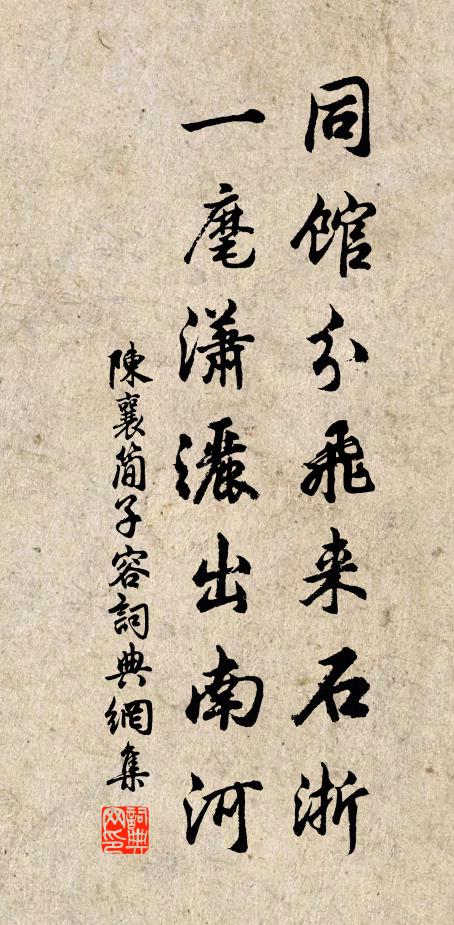 同馆分飛来石浙
一麾瀟灑出南河
陳襄简子容詞典網集
詞典网印